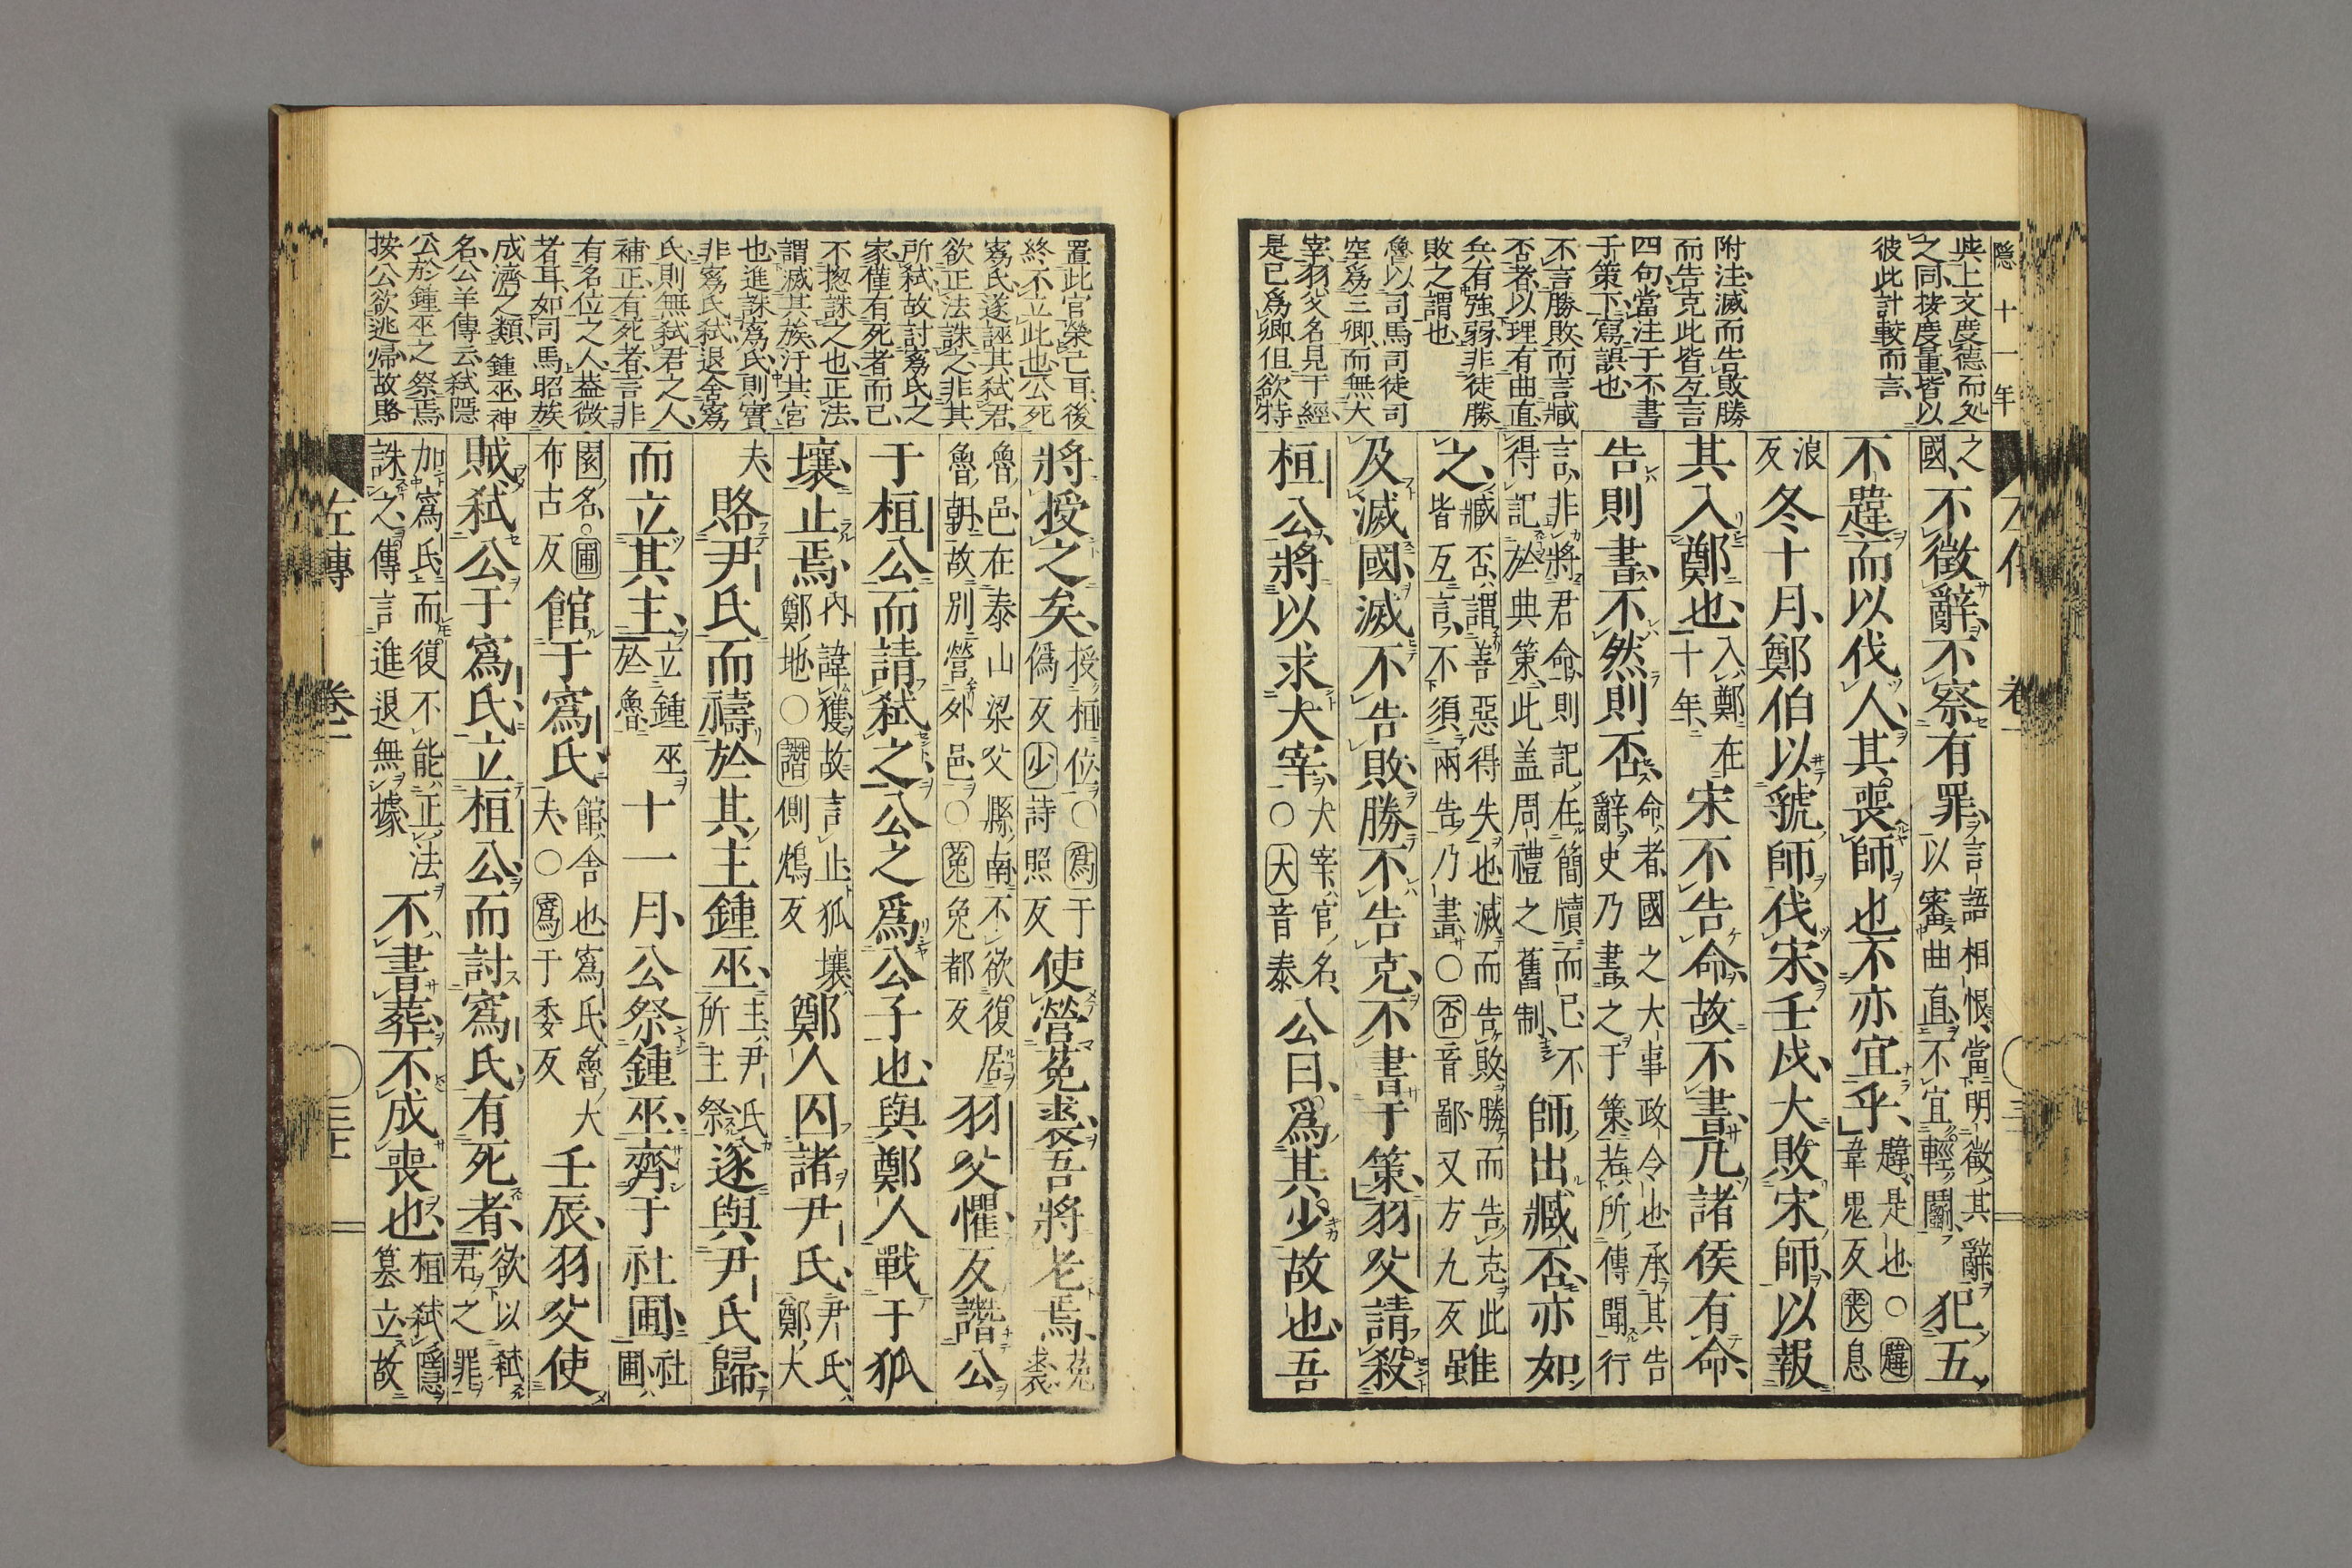 隱十一年
與上文度德而処
之同按度量皆以
彼此計較而言
附注滅而告敗勝
而告克此皆互言
四句當注于不書
于策下寫誤也
不言勝敗而言臧
否者以理有曲直
兵有強弱非徒勝
敗之謂也
魯以司馬司徒司
空爲三卿而無大
宰羽父名見于經
是已爲卿但欲特
之
國不徵辭不察有罪言語相恨當明徵其辭
以審曲直不宜輕鬭犯五
不韙而以伐人其喪師也不亦宜乎韙是也○韙
韋鬼反喪息
浪
反冬十月鄭伯以虢師伐宋壬戌大敗宋師以報
其入鄭也入鄭在
十年宋不告命故不書凡諸侯有命
告則書不然則否命者國之大事政令也承其告
辭史乃書之于策若所傳聞行
言非將君命則記在簡牘而已不
得記於典策此盖周禮之舊制師出臧否亦如
之臧否謂善惡得失也滅而告敗勝而告克此
皆互言不須兩告乃書○否音鄙又方九反雖
及滅國滅不告敗勝不告克不書于策羽父請殺
桓公將以求大宰大宰官名
○大音泰公曰爲其少故也吾
置此官榮己耳後
終不立此也公死
寪氏遂誣其弑君
欲正法誅之非其
所弑故討寪氏之
家僅有死者而已
不揔誅之也正法
謂滅其族汙其宮
也進誅寪氏則實
非寪氏弑退舍寪
氏則無弑君之人
補正有死者言非
有名位之人葢微
者耳如司馬昭族
成濟之類鍾巫神
名公羊傳云弑隱
公於鍾巫之祭焉
按公欲逃歸故賂
將授之矣授桓位○爲于
僞反少詩照反使營菟裘吾將老焉菟
裘
魯邑在泰山梁父縣南不欲復居
魯朝故別營外邑○菟兔都反羽父懼反譖公
于桓公而請弑之公之爲公子也與鄭人戰于狐
壤止焉內諱獲故言止狐壤
鄭地○譖側鴆反鄭人囚諸尹氏尹氏
鄭大
夫賂尹氏而禱於其主鍾巫主尹氏
所主祭遂與尹氏歸
而立其主立鍾巫
於魯十一月公祭鍾巫齊于社圃社
圃
園名○圃
布古反館于寪氏館舍也寪氏魯大
夫○寪于委反壬辰羽父使
賊弑公于寪氏立桓公而討寪氏有死者欲以弑
君之罪
加寪氏而復不能正法
誅之傳言進退無據不書葬不成喪也桓弑隱
篡立故
左傳
卷一